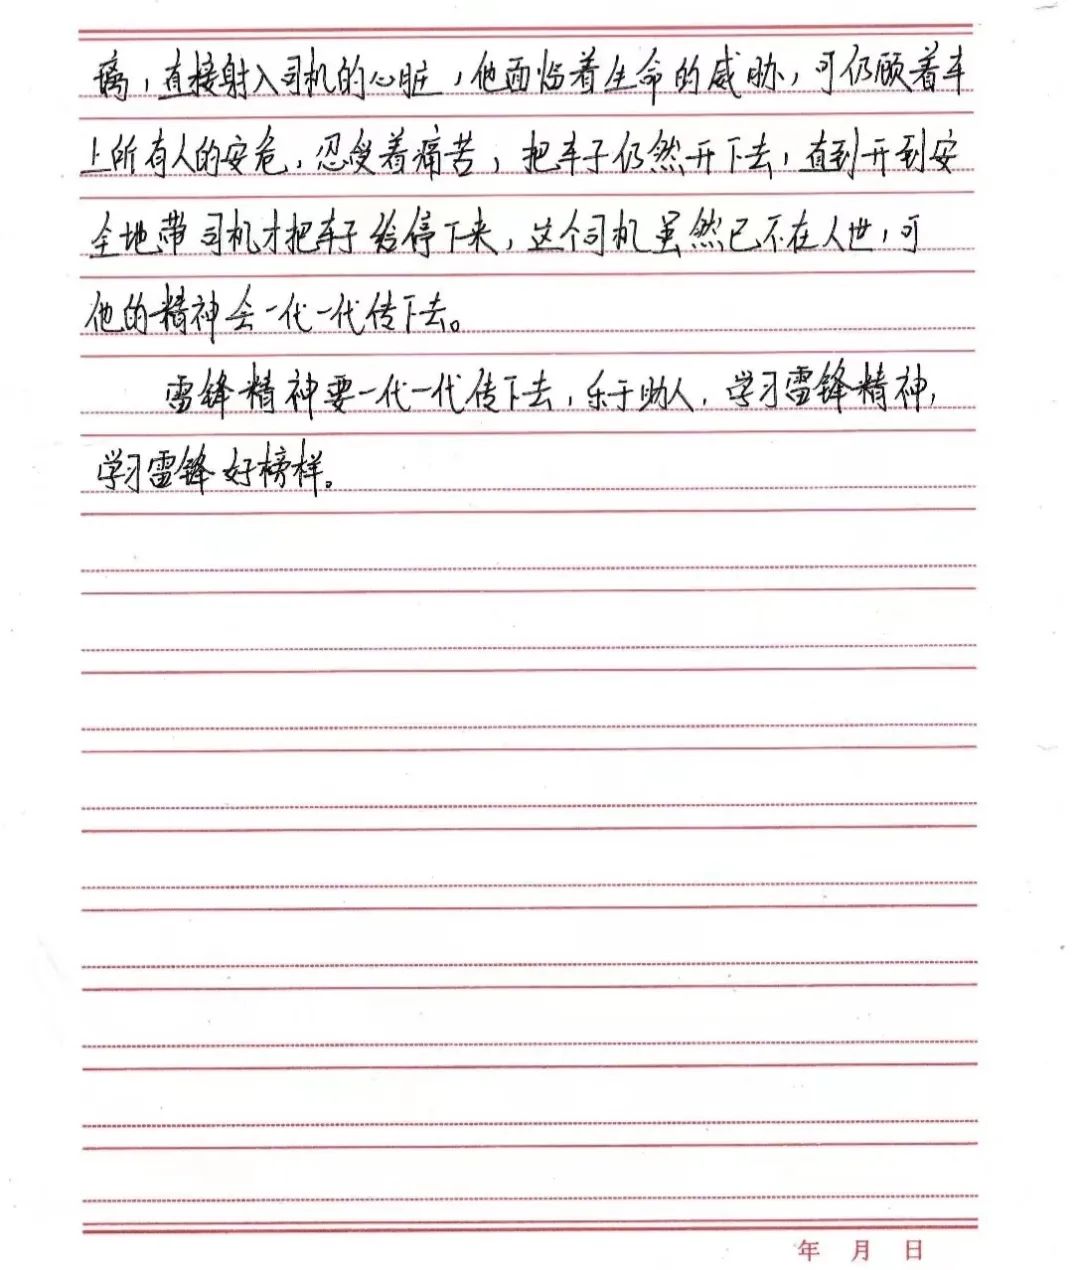 璃，直接射入司机的心脏，他面临着生命的威胁，可仍顾着车
上所有人的安危，忍受着痛苦，把车子仍然开下去，直到开到安
全地带司机才把车子给停下来，这个司机虽然已不在人世，可
他的精神会一代一代传下去。
雷锋精神要一代一代传下去，乐于助人，学习雷锋精神，
学习雷锋好榜样。
年 月 日